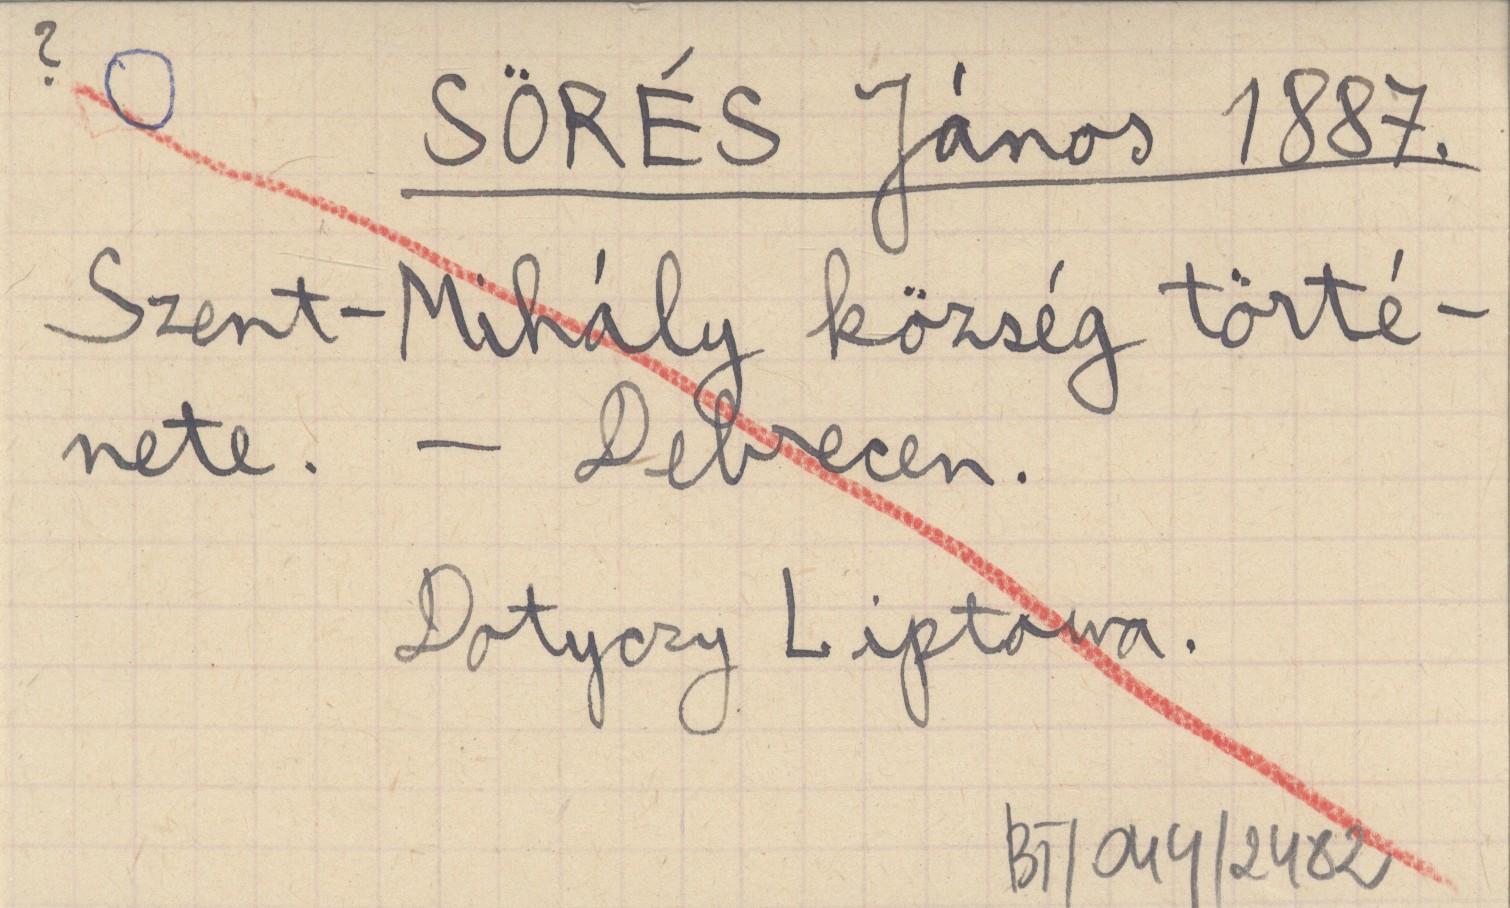 ?
SÖRÉS János 1887.
Szent-Mihály község törté-
nete. — Debrecen.
Dotyczy Liptowa.
BT/044/2482